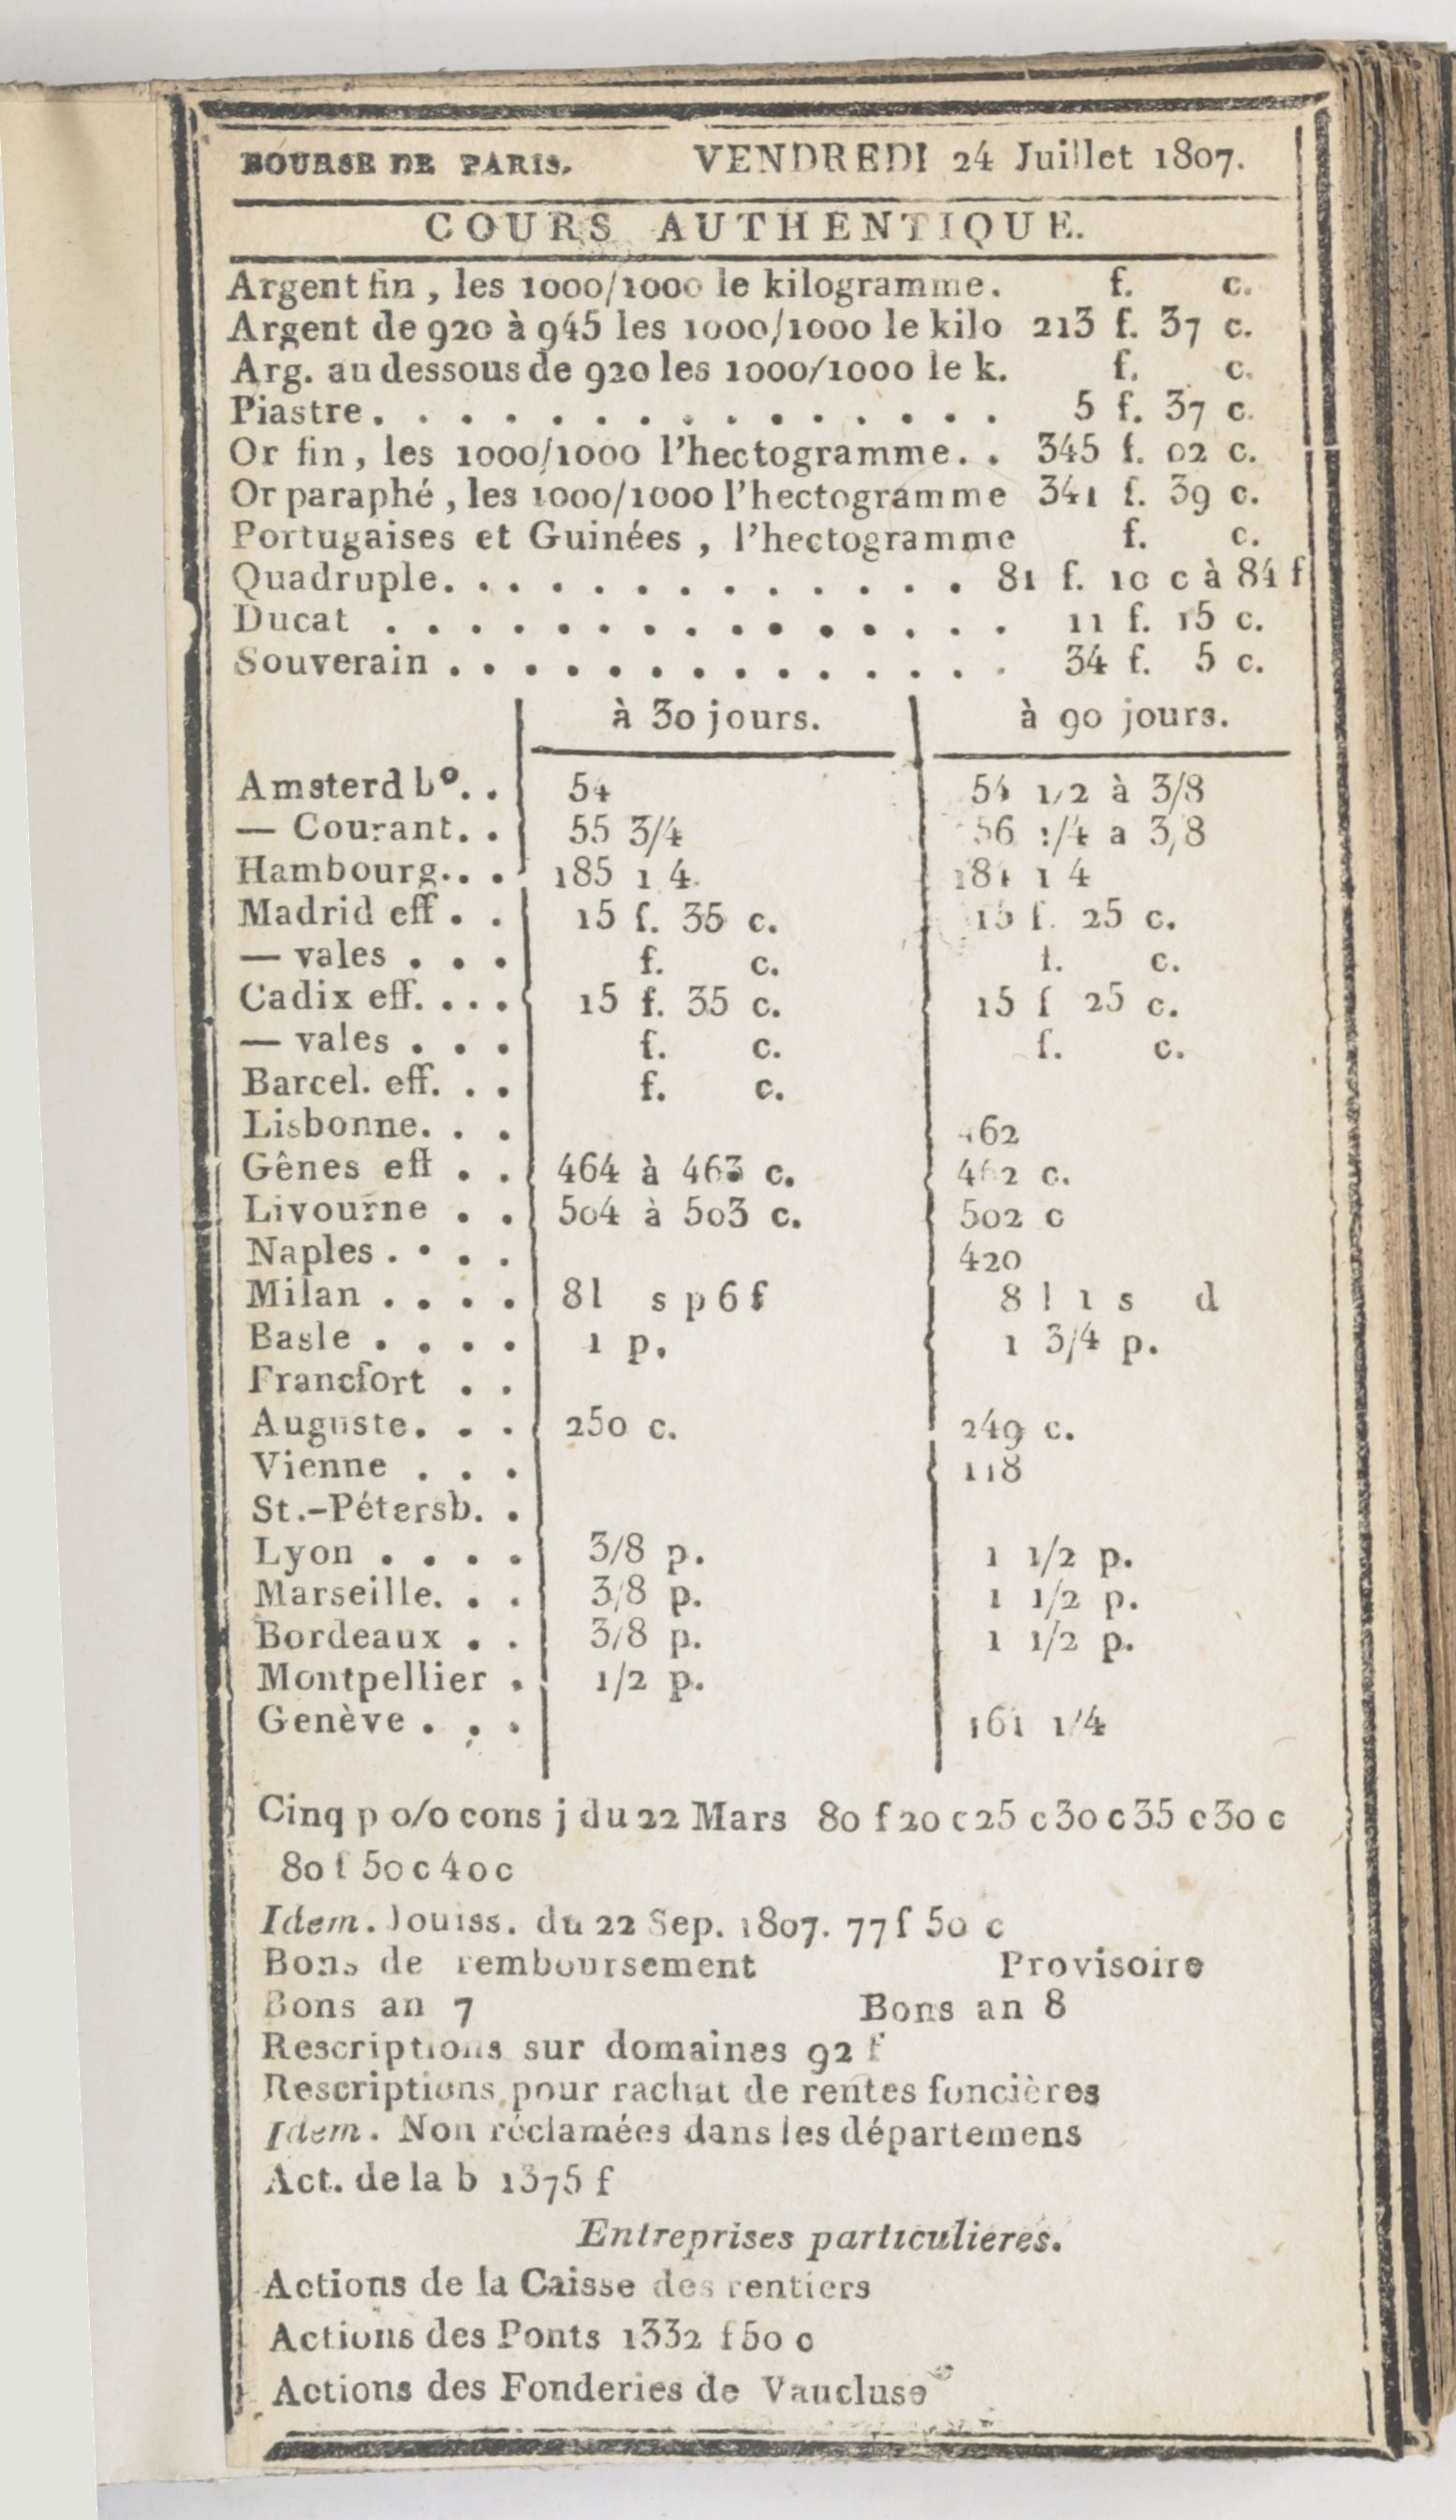 BOURSE DE PARIS. VENDREDI 24 Juillet 1807.
COURS AUTHENTIQUE.
Argent fin , les 1000/1000 le kilogramme. f. c.
Argent de 920 à 945 les 1000/1000 le kilo 213 f. 37 c.
Arg. au dessous de 920 les 1000/1000 le k. f. c.
Piastre. . . . . . . . . . . . . . . 5 f. 37 c.
Or fin, les 1000/1000 l'hectogramme. . 345 f. 02 c.
Or paraphé , les 1000/1000 l'hectogramme 341 f. 39 c.
Portugaises et Guinées , l'hectogramme f. c.
Quadruple. . . . . . . . . . . . . 81 f. 10 c à 84 f
Ducat . . . . . . . . . . . . . . . 11 f. 15 c.
Souverain . . . . . . . . . . . . . . 34 f. 5 c.
à 30 jours. à 90 jours.
Amsterd b°. . 54 54 1/2 à 3/8
— Courant. . 55 3/4 56 1/4 a 3/8
Hambourg. . . 185 1 4 184 1 4
Madrid eff . . 15 f. 35 c. 15 f. 25 c.
— vales . . . f. c. f. c.
Cadix eff. . . . 15 f. 35 c. 15 f 25 c.
— vales . . . f. c. f. c.
Barcel. eff. . . f. c.
Lisbonne. . . 462
Gênes eff . . 464 à 463 c. 462 c.
Livourne . . 504 à 503 c. 502 c
Naples . . . . 420
Milan . . . . 8 l s p 6 f 8 l 1 s d
Basle . . . . 1 p. 1 3/4 p.
Francfort . .
Auguste. . . 250 c. 249 c.
Vienne . . . 118
St.-Pétersb. .
Lyon . . . . 3/8 p. 1 1/2 p.
Marseille. . . 3/8 p. 1 1/2 p.
Bordeaux . . 3/8 p. 1 1/2 p.
Montpellier . 1/2 p.
Genève . . . 161 1/4
Cinq p o/o cons j du 22 Mars 80 f 20 c 25 c 30 c 35 c 30 c
80 f 50 c 40 c
Idem. Jouiss. du 22 Sep. 1807. 77 f 50 c
Bons de remboursement Provisoire
Bons an 7 Bons an 8
Rescriptions sur domaines 92 f
Rescriptions pour rachat de rentes foncières
Idem. Non réclamées dans les départemens
Act. de la b 1375 f
Entreprises particulieres.
Actions de la Caisse des rentiers
Actions des Ponts 1332 f 50 c
Actions des Fonderies de Vaucluse